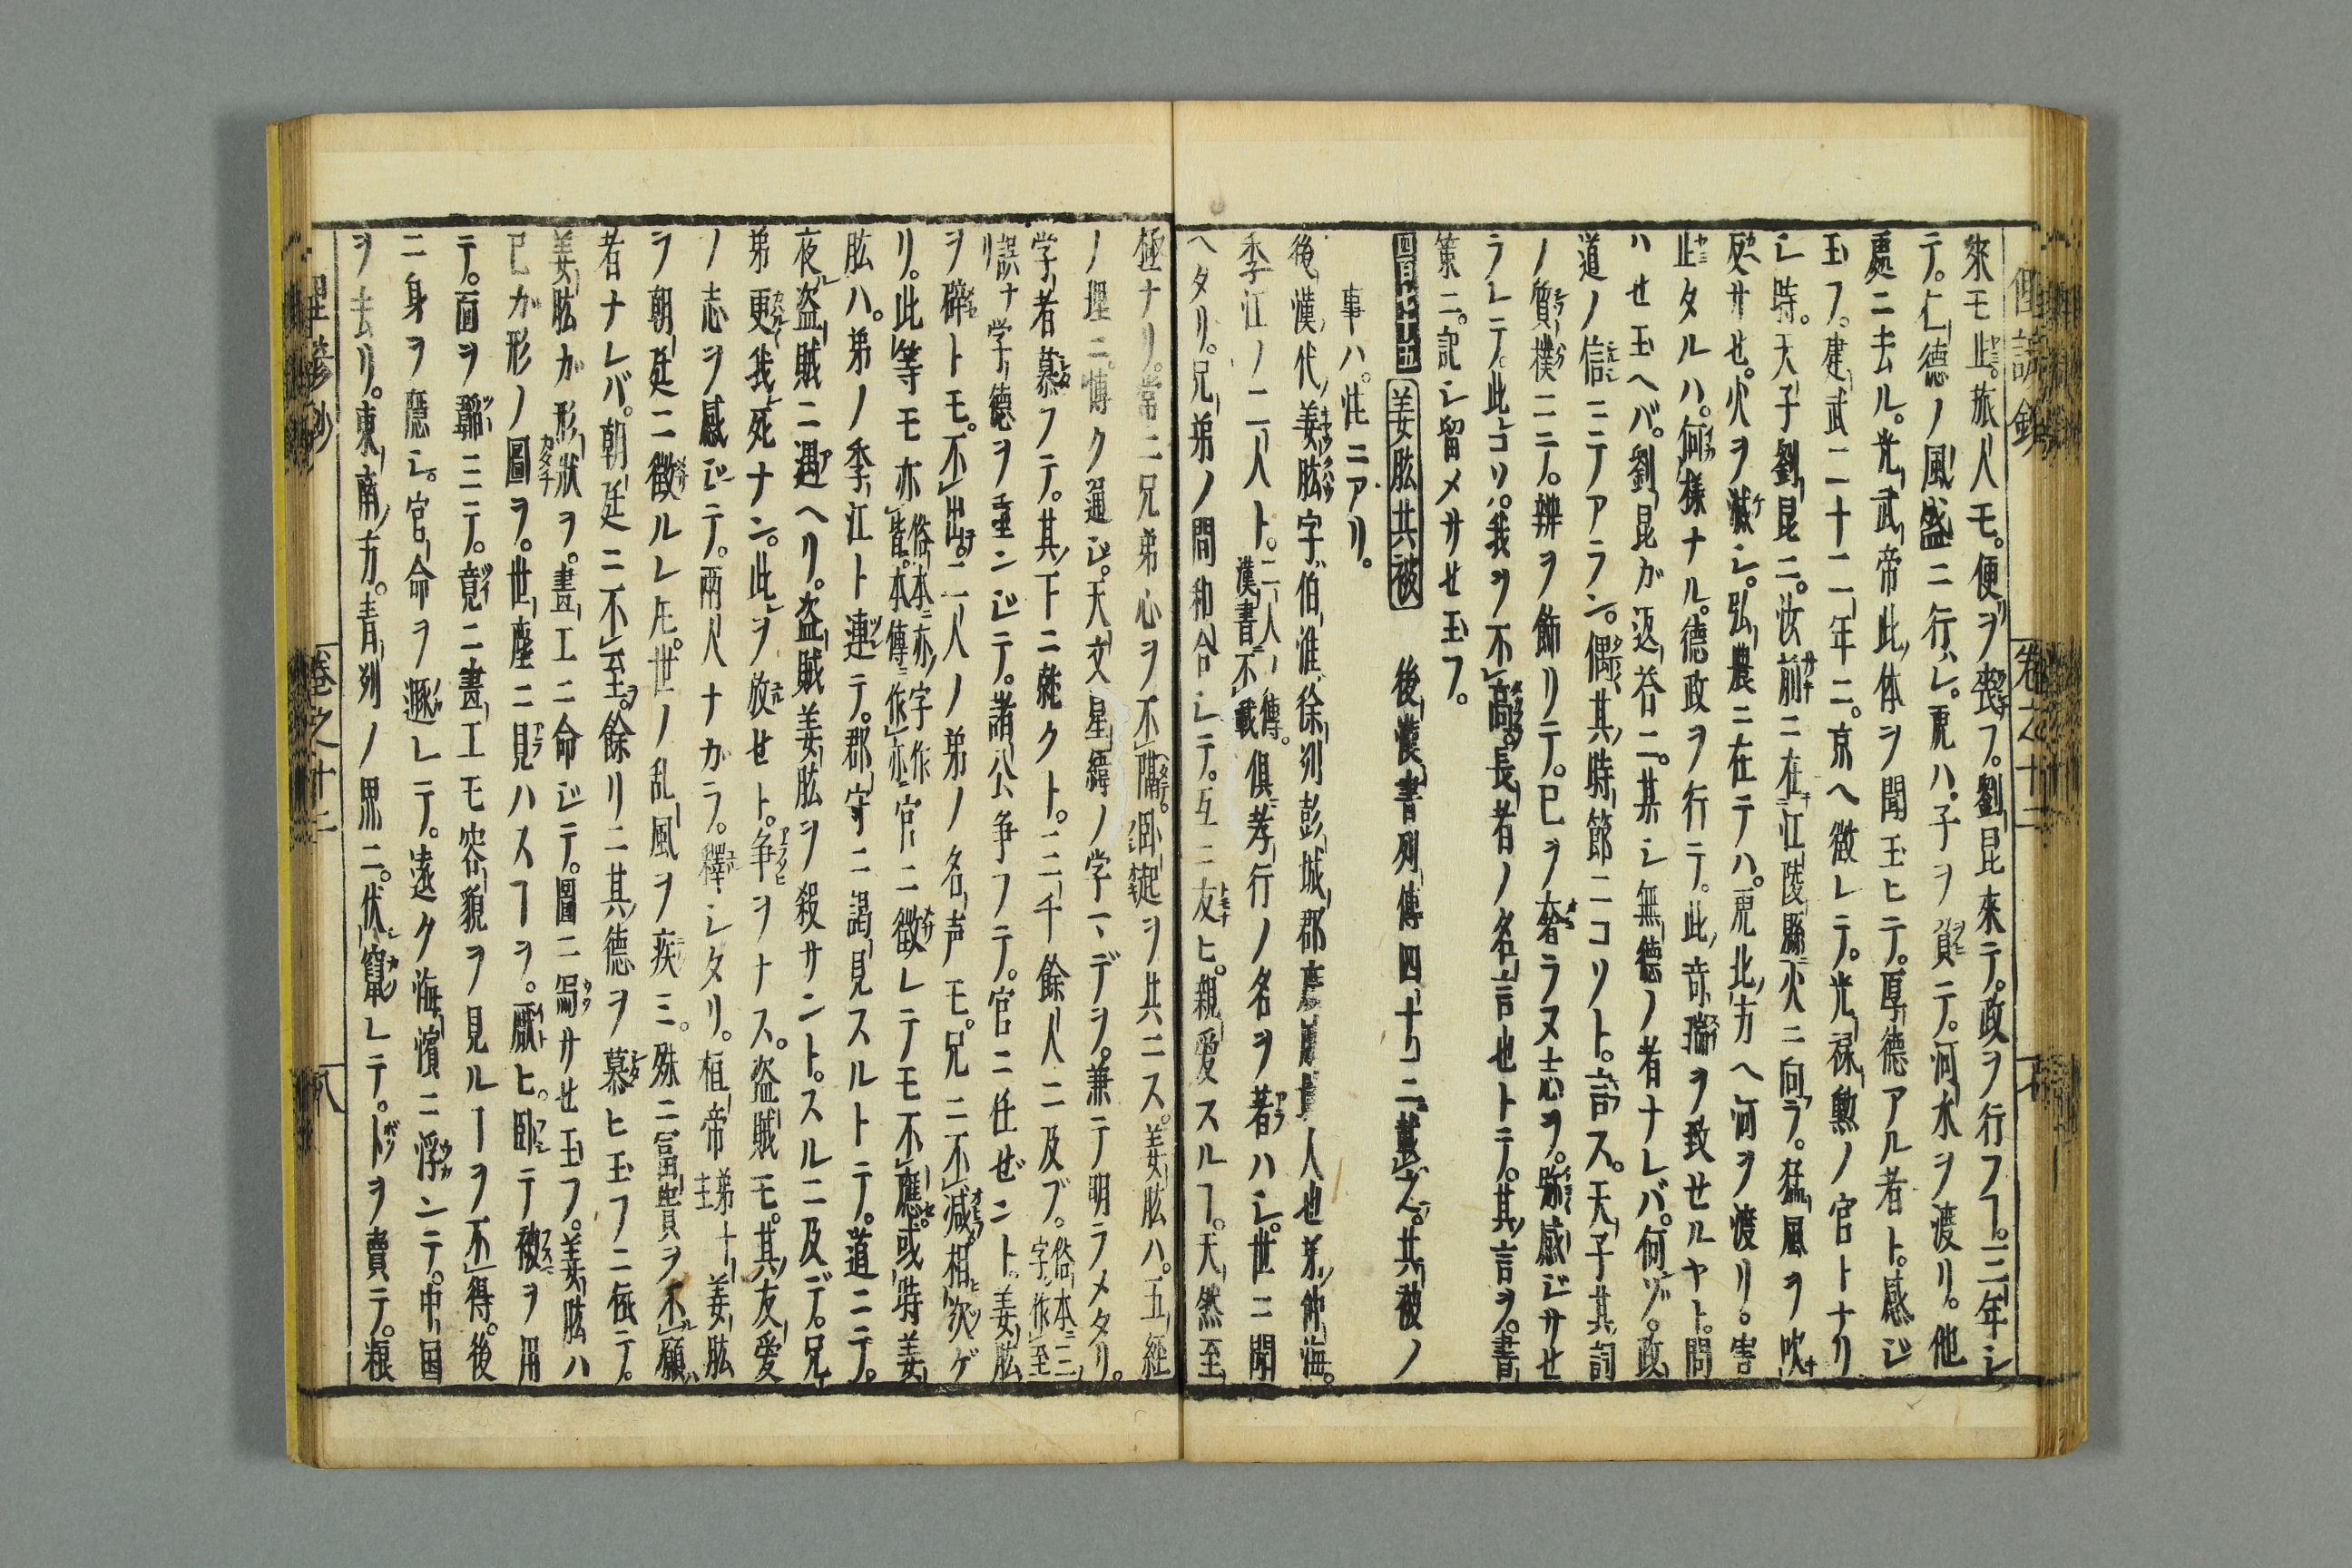 來モ止。旅人モ。便ヲ喪フ。劉昆來テ。政ヲ行フ┐。三年シ
テ。仁德ノ風盛ニ行ハレ。虎ハ。子ヲ負テ。河水ヲ渡リ。他
處ニ去ル。光武帝此体ヲ聞玉ヒテ。厚德アル者ト。感ジ
玉フ。建武二十二年ニ。京ヘ徴レテ。光禄勲ノ官トナリ
シ時。天子劉昆ニ。汝前ニ在江陵縣火ニ向ラ。猛風ヲ吹
反サセ。火ヲ滅シ。弘農ニ在テハ。虎北方ヘ河ヲ渡リ。害
止タルハ。何樣ナル。德政ヲ行テ。此奇瑞ヲ致セルヤト。問
ハセ玉ヘバ。劉昆ガ返荅ニ。某シ無德ノ者ナレバ。何ゾ。政
道ノ信ニテアラン。偶其時節ニコソト。言ス。天子其詞
ノ質樸ニ〆。辨ヲ飾リテ。已ヲ奢ラヌ志ヲ。弥感ジサセ
ラレテ。此コソハ。我ヲ不高。長者ノ名言也トテ。其言ヲ。書
策ニ。記シ留メサセ玉フ。
四百七十五 姜肱共被 後漢書列傳四十二載之。共被ノ
事ハ。註ニアリ。
後漢代姜肱字伯淮徐州彭城郡廣戚縣人也弟仲海。
季江ノ二人ト。二人傳。漢書不載俱孝行ノ名ヲ著ハシ。世ニ聞
ヘタリ。兄弟ノ間和合シテ。互ニ友ヒ。親愛スル┐。天然至
極ナリ。常ニ兄弟心ヲ不隔。卧起ヲ共ニス。姜肱ハ。五経
ノ理ニ。博ク通ジ。天文星緯ノ学マデヲ。兼テ明ラメタリ。
学者慕フテ。其下ニ就クト。三千餘人ニ及ブ。俗本ニ三字作至
誤ナリ学德ヲ重ンジテ。諸公争フテ。官ニ任ゼント。姜肱
ヲ辟トモ。不出。二人ノ弟ノ名声モ。兄ニ不減相次ゲ
リ。此等モ亦俗本ニ亦字作皆。本傳ニ作亦官ニ徴レテモ不應。或時姜
肱ハ。弟ノ季江ト連テ。郡守ニ謁見スルトテ。道ニテ。
夜盗賊ニ遇ヘリ。盗賊姜肱ヲ殺サントスルニ及デ。兄
弟更我死ナン。此ヲ放セト。争ヲナス。盗賊モ。其友愛
ノ志ヲ感ジテ。兩人ナガラ。釋シタリ。桓帝 第十主 姜肱
ヲ朝廷ニ徴ルレ𪜈。世ノ乱風ヲ疾ミ。殊ニ冨貴ヲ不願
者ナレバ。朝廷ニ不至。餘リニ其德ヲ慕ヒ玉フニ依テ。
姜肱ガ形狀ヲ。畫工ニ命ジテ。圖ニ寫サセ玉フ。姜肱ハ
已ガ形ノ圖ヲ。世座ニ見ハス┐ヲ。厭ヒ。卧テ被ヲ用
テ。面ヲ韜ミテ。竟ニ畫工モ容貌ヲ見ル┐ヲ不得。後
ニ身ヲ隱シ。官命ヲ遯レテ。遠ク海濱ニ浮ンデ。中国
ヲ去リ。東南方。青州ノ界ニ。伏竄レテ。卜ヲ賣テ。粮
卷之十二
卷之十二
八